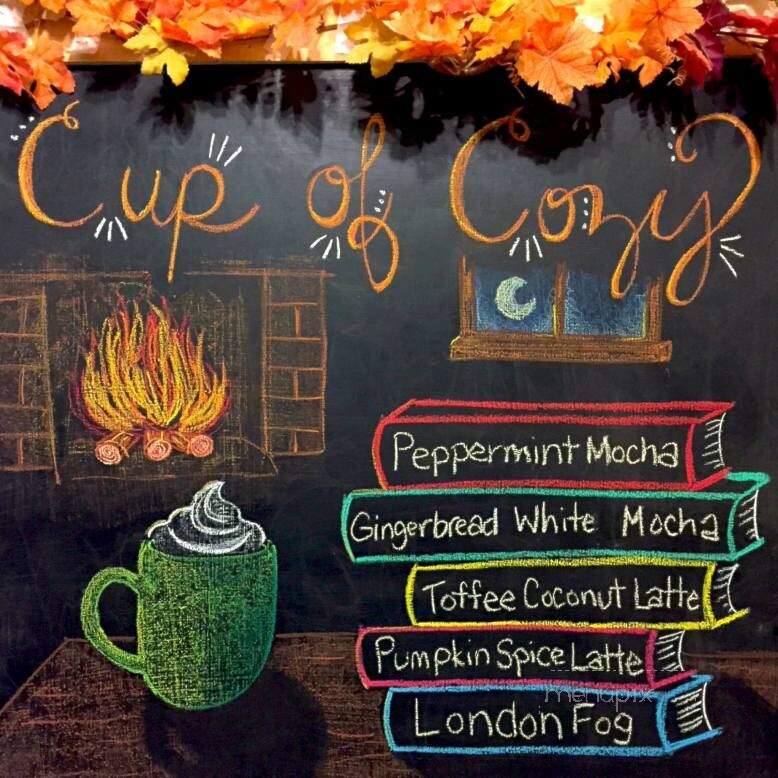 Cup of Cozy
Peppermint Mocha
Gingerbread White Mocha
Toffee Coconut Latte
Pumpkin Spice Latte
menupix
London Fog